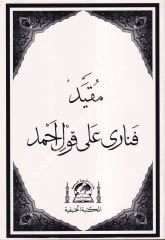 مقيَّد
فناری علی قول أحمد
المكتبة الحنيفية